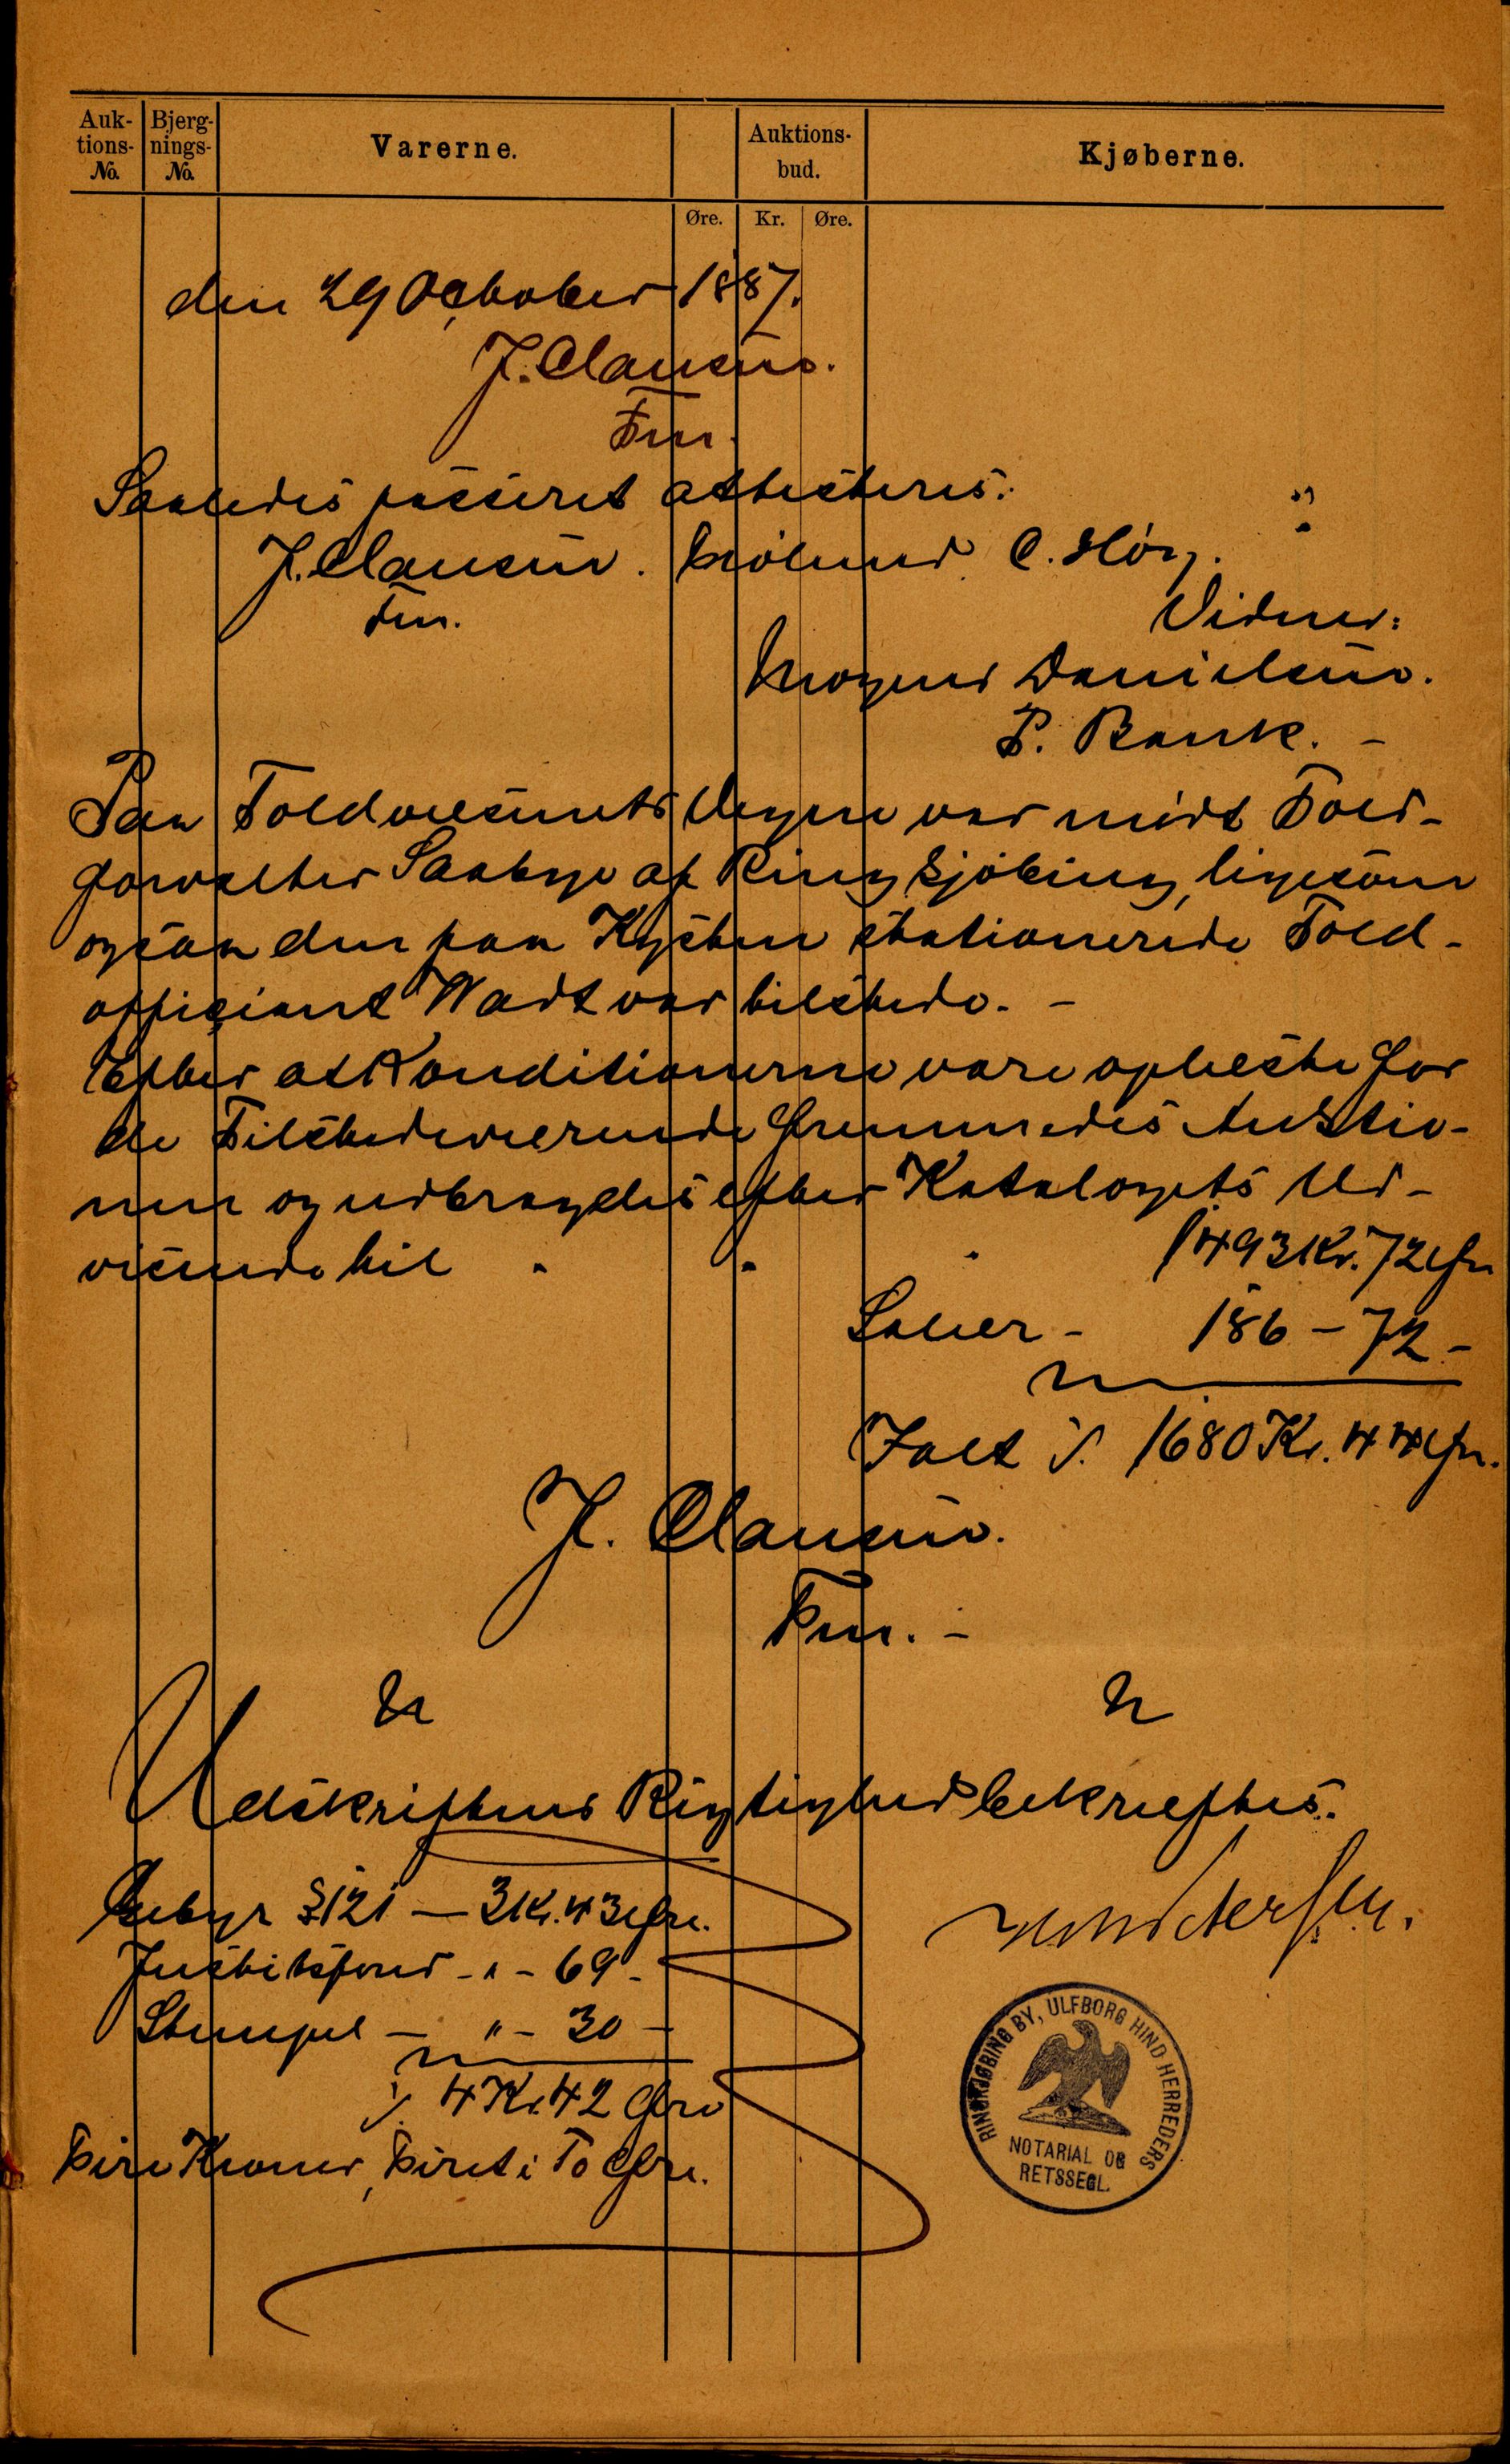 Auk-
tions-
No.
Bjerg-
nings-
No.
Varerne.
Auktions-
bud.
Kjøberne.
Øre. Kr. Øre.
den 29 October 1887.
J. Clausen.
Fm.
Saaledes passeret attesteres.
J. Clausen. C. Høy.
Fm.
Vidner:
Mogens Danielsen.
P. Bank. -
Paa Toldvæsenets Vegne var mødt Told-
forvalter Saabye af Ringkjøbing, ligesom
ogsaa den paa Kysten stationerede Told-
officiant Wadt var tilstede. -
Efter at Konditionerne vare oplæste for
de Tilstedeværende fremmedes Auktio-
nen og udbragdes efter Katalogets Ud-
visende til " " " 1493 Kr. 72 Øre
Salær - 186 - 72 -
Ialt 1680 Kr. 44 Øre.
J. Clausen.
Fm. -
Udskriftens Rigtighed bekræftes.
Gebyr § 121 - 3 Kr. 43 Øre.
Justitsfond - " - 69 -
Stempel - " - 30 -
4 Kr. 42 Øre
Fire Kroner, Fireti To Øre.
RINGKJØBING BY, ULFBORG HIND HERREDERS
NOTARIAL OG
RETSSEGL.